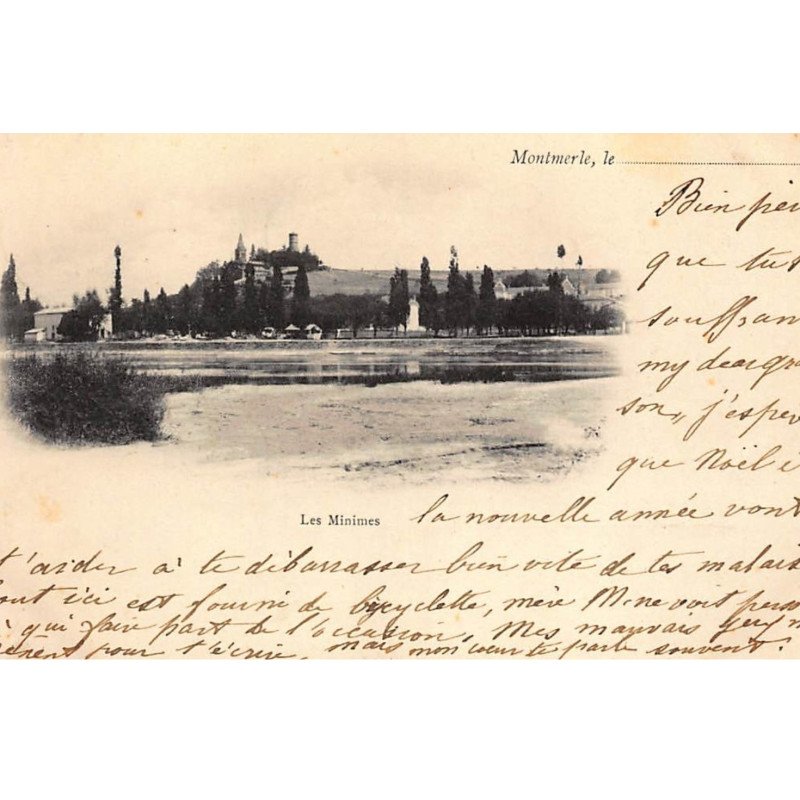 Montmerle, le
Bien pei
que tu t
souffran
my dear gra
son,, j'esper
que Noël e
Les Minimes
la nouvelle année vont
t'aider à te débarrasser bien vite de tes malais
tout ici est fourni de bicyclette, mère M. ne voit perso
à qui faire part de l'occasion. Mes mauvais yeux m
pour t'écrire, mais mon cœur te parle souvent.